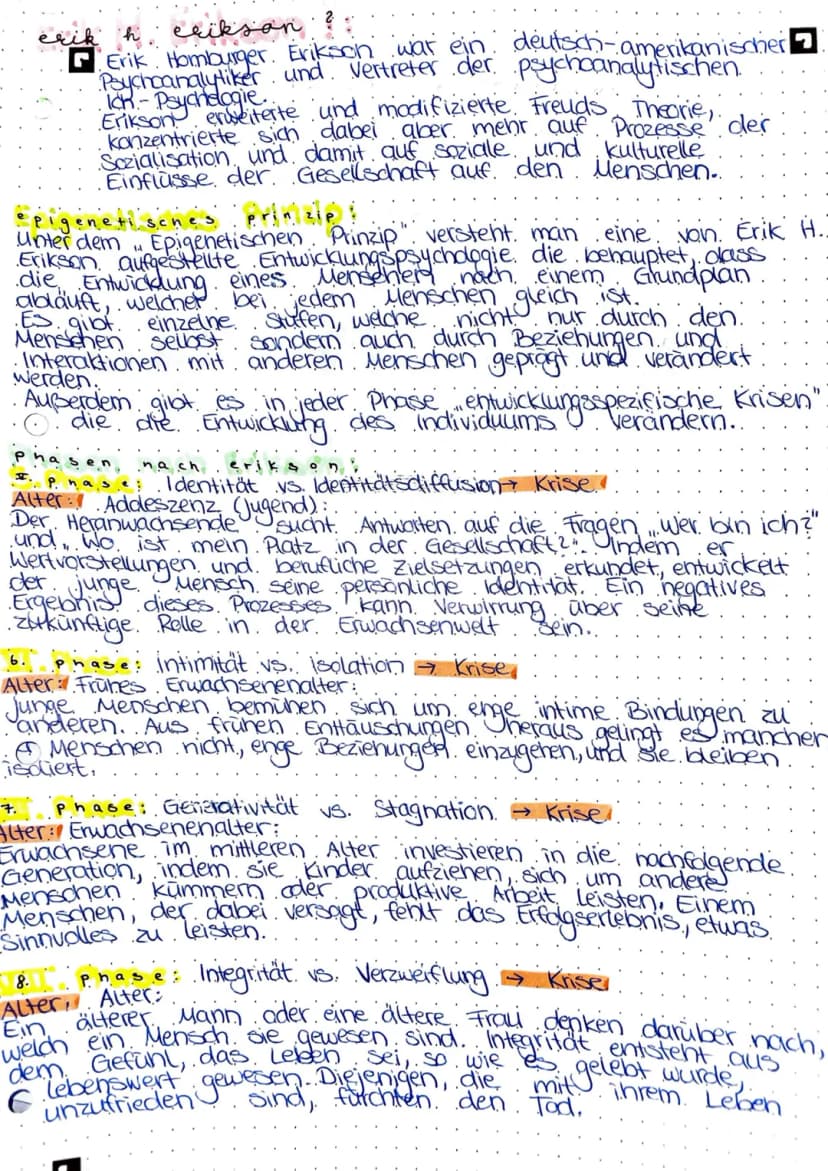 erik h. erikson ?:
Erik Homburger Erikson war ein deutsch-amerikanischer
Psychoanalytiker und Vertreter der psychoanalytischen
Ich-Psychologie.
Erikson erweiterte und modifizierte Freuds Theorie,
konzentrierte sich dabei aber mehr auf Prozesse der
Sozialisation und damit auf soziale und kulturelle
Einflüsse der Gesellschaft auf den Menschen.
Epigenetisches Prinzip:
Unter dem „Epigenetischen Prinzip" versteht man eine von Erik H.
Erikson aufgestellte Entwicklungspsychologie die behauptet, dass
die Entwicklung eines Menschen nach einem Grundplan
abläuft, welcher bei jedem Menschen gleich ist.
Es gibt einzelne Stufen, welche nicht nur durch den
Menschen selbst sondern auch durch Beziehungen und
Interaktionen mit anderen Menschen geprägt und verändert
werden.
Außerdem gibt es in jeder Phase „entwicklungsspezifische Krisen"
die die Entwicklung des Individuums verändern.
Phasen nach erikson:
Phase: Identität vs. Identitätsdiffusion → Krise
Alter: Addeszenz (Jugend):
Der Heranwachsende sucht Antworten auf die Fragen „Wer bin ich?"
und „Wo ist mein Platz in der Gesellschaft?". Indem er
Wertvorstellungen und berufliche Zielsetzungen erkundet, entwickelt
der junge Mensch seine persönliche Identität. Ein negatives
Ergebnis dieses Prozesses kann Verwirrung über seine
zukünftige Rolle in der Erwachsenwelt sein.
6. Phase: Intimität vs. isolation → Krise
Alter: Frühes Erwachsenenalter:
Junge Menschen bemühen sich um enge intime Bindungen zu
anderen. Aus frühen Enttäuschungen heraus gelingt es mancher
Menschen nicht, enge Beziehungen einzugehen, und sie bleiben
isoliert.
7. Phase: Generativität vs. Stagnation → Krise
Alter: Erwachsenenalter:
Erwachsene im mittleren Alter investieren in die nachfolgende
Generation, indem sie Kinder aufziehen, sich um andere
Menschen kümmern oder produktive Arbeit leisten. Einem
Menschen, der dabei versagt, fehlt das Erfolgserlebnis, etwas
Sinnvolles zu leisten.
8. Phase: Integrität vs. Verzweiflung → Krise
Alter: Alter:
Ein älterer Mann oder eine ältere Frau denken darüber nach,
welch ein Mensch sie gewesen sind. Integrität entsteht aus
dem Gefühl, das Leben sei, so wie es gelebt wurde,
lebenswert gewesen. Diejenigen, die mit ihrem Leben
unzufrieden sind, fürchten den Tod.